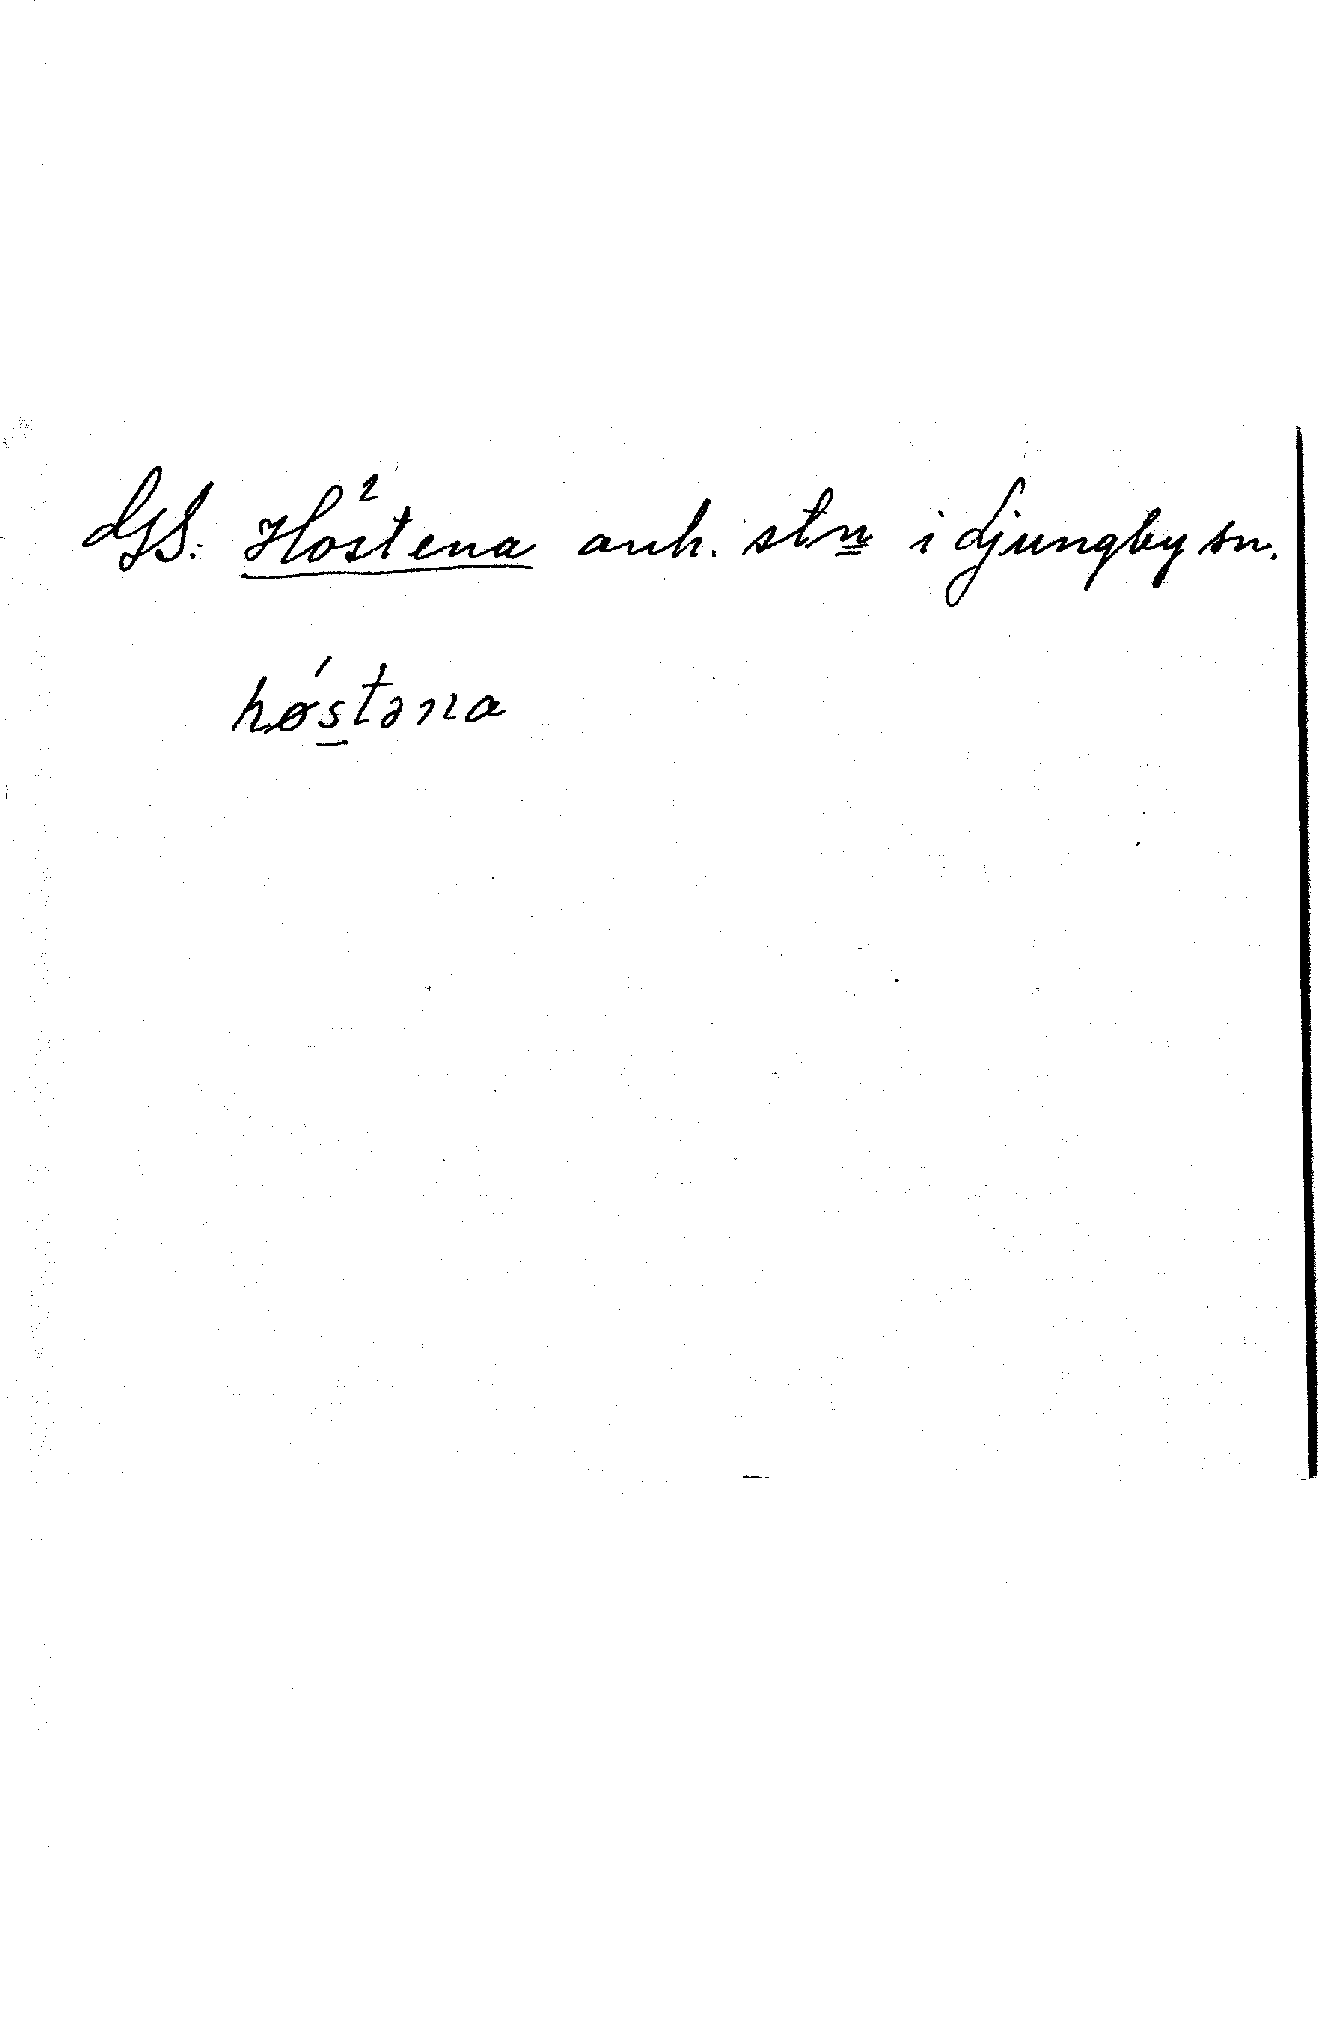 DGS: Hostena anh. stn i Ljungby sn.
høstəna